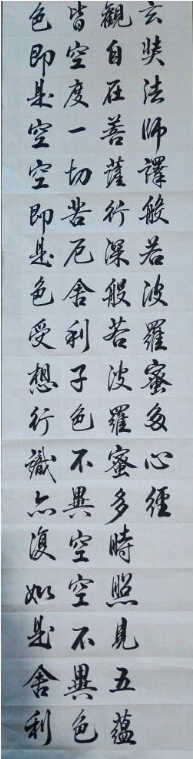 玄奘法師譯般若波羅蜜多心經
觀自在菩薩行深般若波羅蜜多時照見五蘊
皆空度一切苦厄舍利子色不異空空不異色
色即是空空即是色受想行識亦復如是舍利